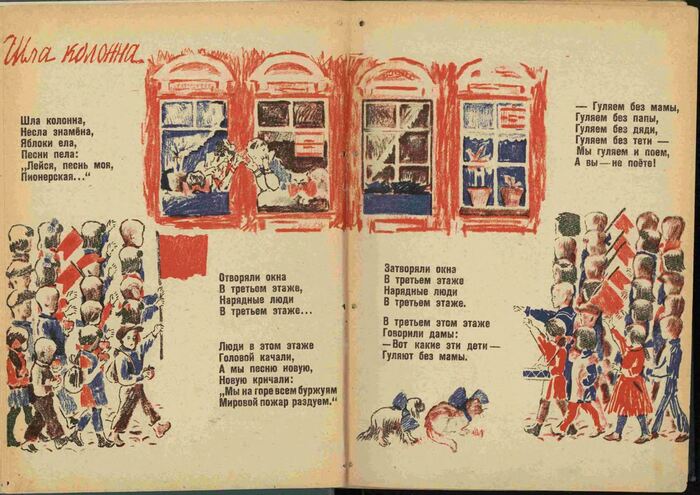 Шла колонна
Шла колонна,
Несла знамёна,
Яблоки ела,
Песни пела:
„Лейся, песнь моя,
Пионерская...“
Отворяли окна
В третьем этаже,
Нарядные люди
В третьем этаже...
Люди в этом этаже
Головой качали,
А мы песню новую,
Новую кричали:
„Мы на горе всем буржуям
Мировой пожар раздуем.“
Затворяли окна
В третьем этаже
Нарядные люди
В третьем этаже.
В третьем этом этаже
Говорили дамы:
—Вот какие эти дети—
Гуляют без мамы.
— Гуляем без мамы,
Гуляем без папы,
Гуляем без дяди,
Гуляем без тети —
Мы гуляем и поем,
А вы—не поёте!